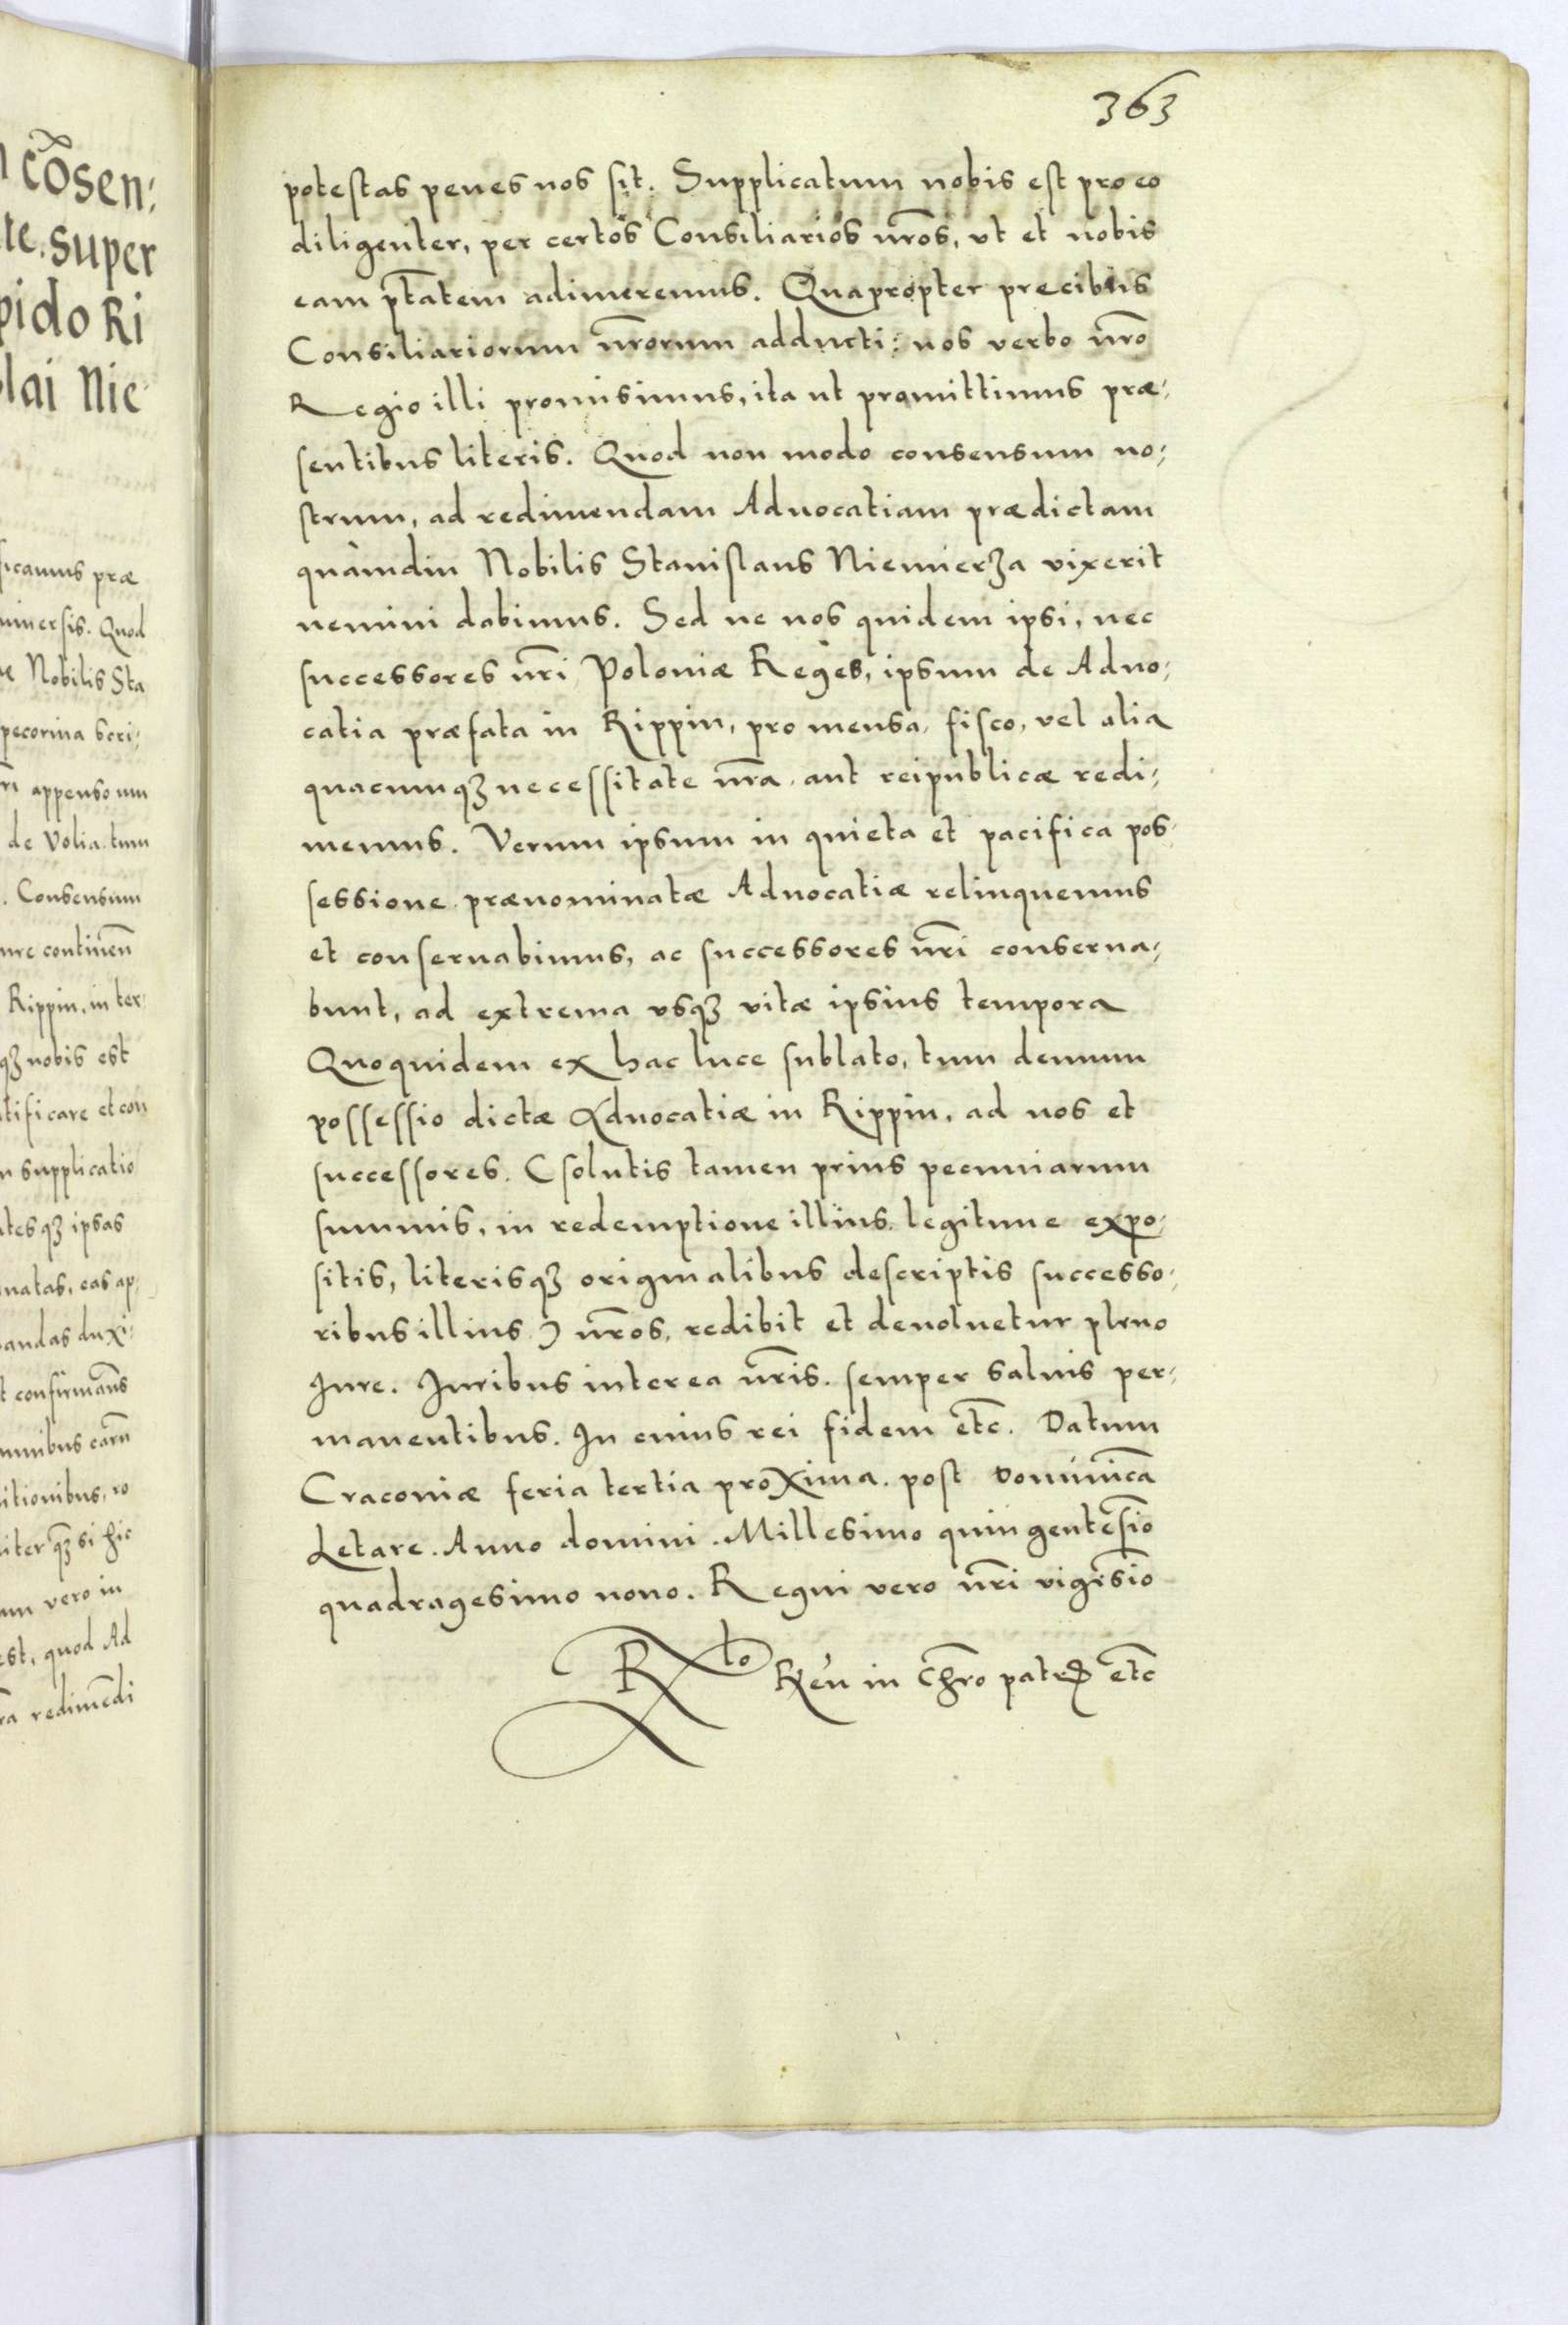 363
cõsen:
te. super
pido Ri
lai Nic
ficamus præ
niuersis. Quod
Nobilis Sta
pecorina scri:
appenso um
de Volia. tum
. Consensum
continen̄
Rippin, in ter
qȝ nobis est
tificare et con
supplicatio
tesqȝ ipsas
natas, eas ap:
andas duxi:
confirmans̄
mnibus earū
itionibus, ro
iter qȝ si hic
vero in
est, quod Ad
redimēdi
potestas penes nos sit. Supplicatum nobis est pro eo
diligenter, per certos Consiliarios nr̄os, vt et nobis
eam ptātem adimeremus. Quapropter precibus
Consiliariorum nr̄orum adducti: nos verbo nr̄o
Regio illi promisimus, ita ut promittimus præ:
sentibus literis. Quod non modo consensum no:
strum, ad redimendam Aduocatiam prædictam
quàmdiu Nobilis Stanislaus Niemierza vixerit
nemini dabimus. Sed ne nos quidem ipsi, nec
successores nr̄i Poloniæ Reges, ipsum de Aduo:
catia præfata in Rippin, pro mensa, fisco, vel alia
quacumqȝ necessitate nr̄a. aut reipublicæ redi:
memus. Verum ipsum in quieta et pacifica pos:
sessione prænominatæ Aduocatiæ relinquemus
et conseruabimus, ac successores nr̄i conserua:
bunt, ad extrema vsqȝ vitæ ipsius tempora
Quoquidem ex hac luce sublato, tum demum
possessio dictæ Aduocatiæ in Rippin, ad nos et
successores. (solutis tamen prius pecuniarum
summis, in redemptione illius. legitime expo:
sitis, literisqȝ originalibus descriptis successo:
ribus illius.) nr̄os, redibit et deuoluetur pleno
Iure. Iuribus interea nr̄is. semper saluis per:
manentibus. In cuius rei fidem etc̄. Datum
Cracoviæ feria tertia proxima. post Dominicā
Letare. Anno domini. Millesimo quingentesīo
quadragesimo nono. Regni vero nr̄i vigesīo
R to Reūi in Chr̄o patris etc̄